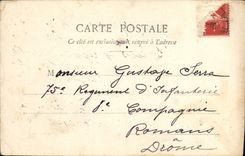 CARTE POSTALE
Ce côté est exclusivement réservé à l'adresse
Monsieur Gustave Serra
75e Regiment d'Infanterie
8e Compagnie
Romans
Drôme